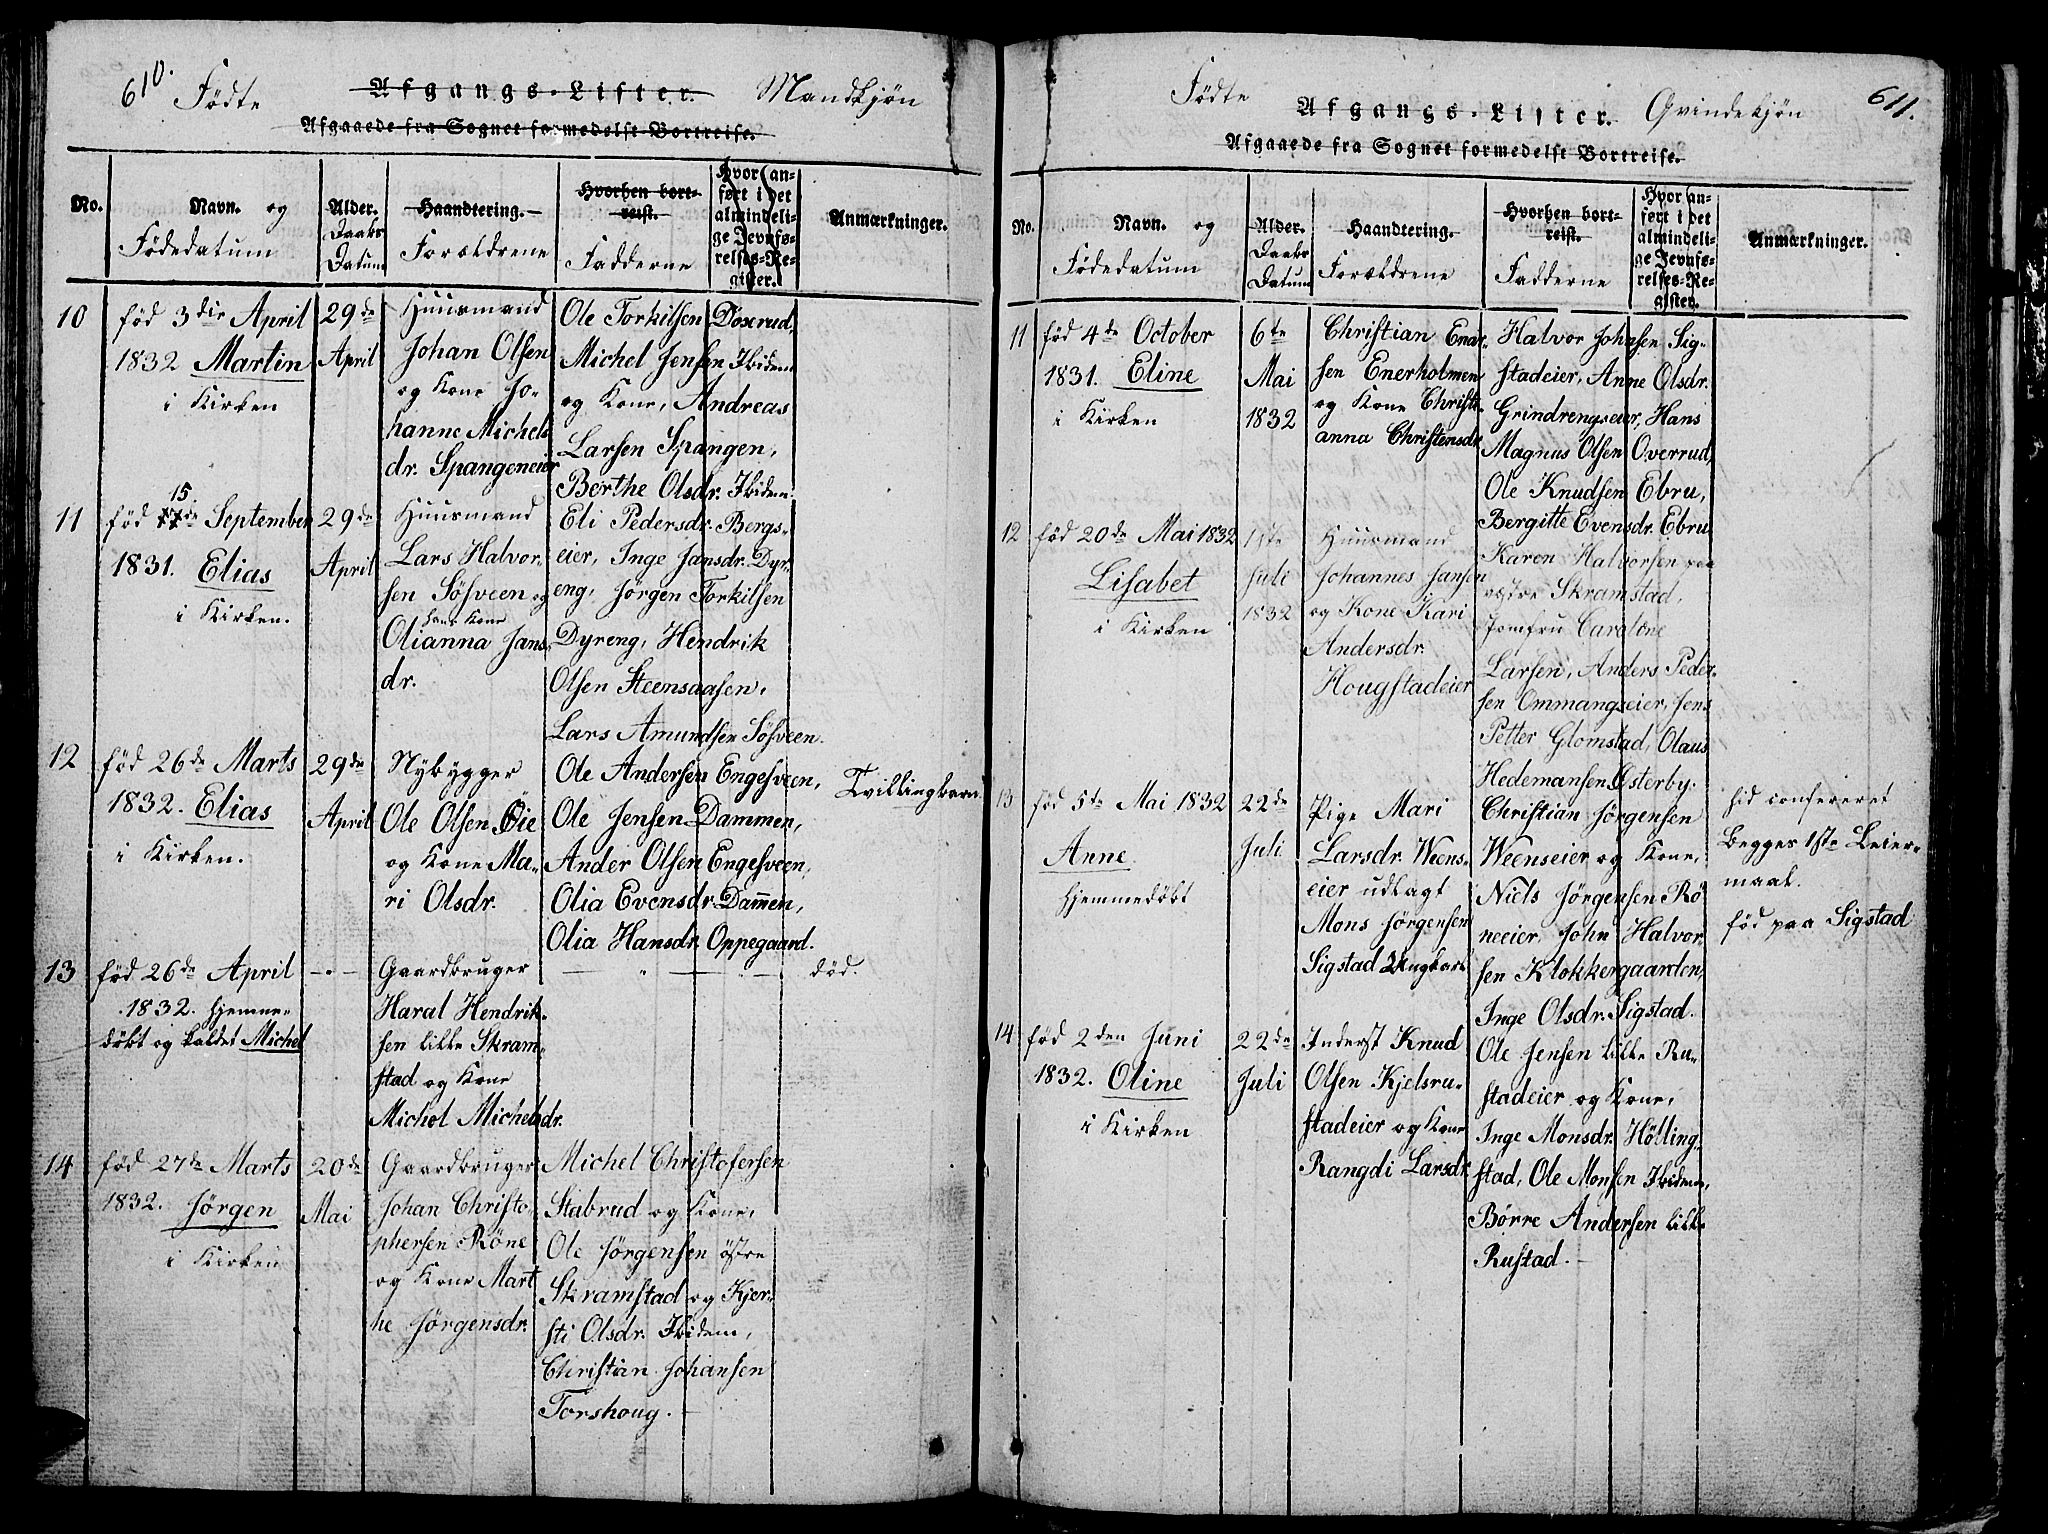 610. Födte Afgangs-Lister. Mandkjøn
Afgaaede fra Sognet formedelst Bortreise.
No.
Navn. og
Födedatum
Alder.
Daabs
Datum
Haandtering.
Forældrene
Hvorhen bort-
reist.
Fadderne
Hvor an-
ført i det
almindeli-
ge Jevnfø-
relses-Re-
gister.
Anmærkninger.
10
föd 3die April
1832 Martin
i Kirken
29de
April
Huusmand
Johan Olsen
og Kone Jo-
hanne Michels
dr. Spangeneier
Ole Torkilsen Döserud,
Michel Jensen Ibidem
og Kone, Andreas
Larsen Spangen,
Berthe Olsdr. Ibidem.
11
15
föd de September
1831. Elias
i Kirken.
29de
April
Huusmand
Lars Halvor-
sen Söhveen og
hans Kone
Olianna Jans
dr.
Eli Pedersdr. Bergs-
eier, Inge Jansdr. Dyr-
eng, Jörgen Torkilsen
Dyreng, Hendrik
Olsen Steensaasen,
Lars Amundsen Söhveen.
12
föd 26de Marts
1832. Elias
i Kirken.
29de
April
Nybygger
Ole Olsen Öie
og Kone Ma-
ri Olsdr.
Ole Andersen Engesveen,
Ole Jensen Dammen,
Ander Olsen Engesveen,
Olia Evensdr. Dam̄en,
Olia Hansdr. Oppegaard.
Tvillingbarn
13
föd 26de April
1832. hjemme-
döbt og kaldet Michel
Gaardbruger
Haral Hendrik-
sen lille Skram-
stad og Kone
Michol Michelsdr.
död.
14
föd 27de Marts
1832. Jörgen
i Kirken
20de
Mai
Gaardbruger
Johan Christo-
phersen Röne
og Kone Mart
he Jörgensdr.
Michel Christofersen
Stabrud og Kone,
Ole Jörgensen östre
Skramstad og Kjer-
sti Olsdr. Ibidem,
Christian Johansen
Torshoug.
Födte Afgangs-Lister. Qvindekjön 611.
Afgaaede fra Sognet formedelst Bortreise.
No.
Navn. og
Födedatum
Alder.
Daabs
Datum
Haandtering.
Forældrene
Hvorhen bort-
reist.
Fadderne
Hvor an-
ført i det
almindeli-
ge Jevnfø-
relses-Re-
gister.
Anmærkninger.
11
föd 4de October
1831. Eline
i Kirken
6te
Mai
1832
Christian Enar-
sen Enerholmen
og Kone Christi-
anna Christensdr.
Halvor Johnsen Sig-
stadeier, Anne Olsdr.
Grindrengseier, Hans
Magnus Olsen Overrud,
Ole Knudsen Ebru,
Bergitte Evensdr. Ebru
12
föd 20de Mai 1832
Lisabet
i Kirken
1ste
Juli
1832
Huusmand
Johannes Jansen
og Kone Kari
Andersdr.
Hougstadeier
Karen Halvorsen paa
östre Skramstad,
Jomfru Caroline
Larsen, Anders Peder-
sen Ommangseier, Jens
Petter Glomstad, Olaus
Hedemansen Österby.
13
föd 5te Mai 1832
Anne
hjemmedöbt
22de
Juli
Pige Mari
Larsdr. Weens-
eier udlagt
Mons Jörgensen
Sigstad Ungkarl
Christian Jörgensen
Weenseier og Kone,
Niels Jörgensen Rö
neeier, John Halvor-
sen Klokkergaarden,
Inge Olsdr. Sigstad.
hid confereret
Begges 1ste Leier-
maal.
föd paa Sigstad
14
föd 2den Juni
1832. Oline
i Kirken
22de
Juli
Inderst Knud
Olsen Kjelsru-
stadeier og Kone
Rangdi Larsdr.
Ole Jensen lille Ru-
stadeier og Kone,
Inge Monsdr. Hölling-
stad, Ole Monsen Ibidem,
Börre Andersen lille
Rustad.